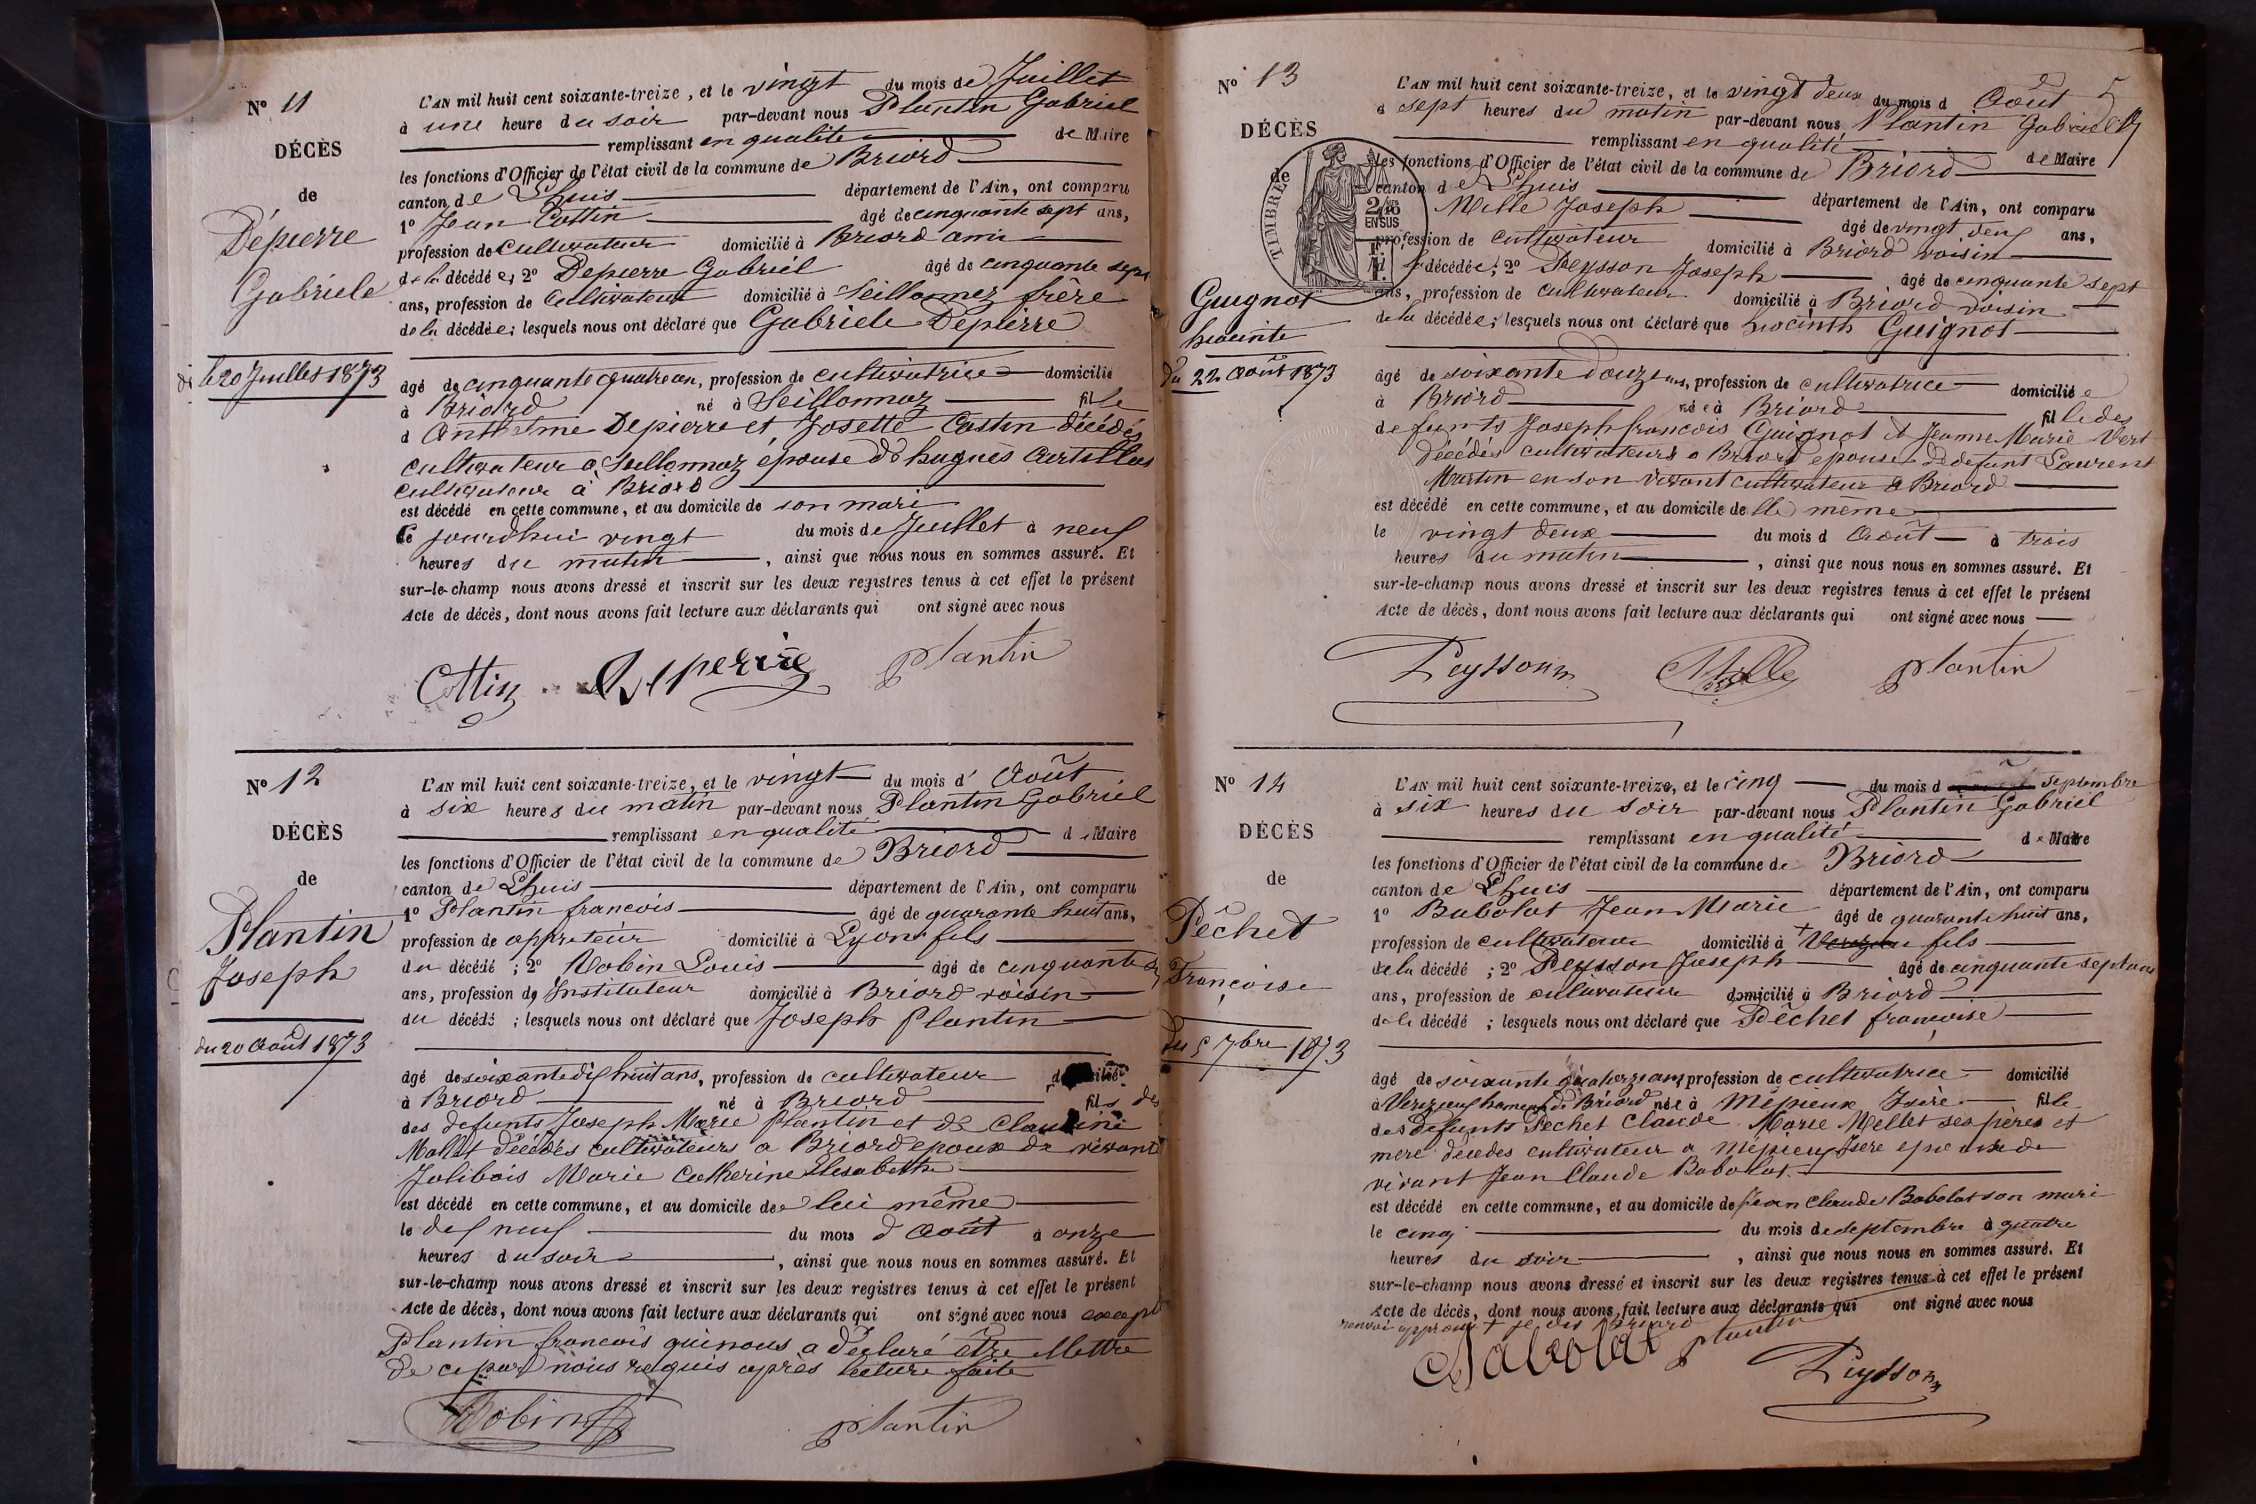 Nº 11
DÉCÈS
de
Dépierre
Gabriele
le 20 Juillet 1873
L'AN mil huit cent soixante-treize, et le vingt du mois de Juillet
à une heure du soir par-devant nous Plantin Gabriel
remplissant en qualité de Maire
les fonctions d'Officier de l'état civil de la commune de Briord
canton de Lhuis département de l'Ain, ont comparu
1º Jean Cottin âgé de cinquante sept ans,
profession de cultivateur domicilié à Briord ami
de la décédée; 2º Depierre Gabriel âgé de cinquante sept
ans, profession de Cultivateur domicilié à Seillonnaz frère
de la décédée; lesquels nous ont déclaré que Gabriele Depierre
âgé de cinquante quatre an, profession de cultivatrice domicilié
à Briord né à Seillonnaz fille
d Anthelme Depierre et Josette Costin décédés
cultivateur a Seillonnaz épouse de hugues
cultivateur à Briord
est décédé en cette commune, et au domicile de son mari
le jourdhui vingt du mois de Juillet à neuf
heures du matin, ainsi que nous nous en sommes assuré. Et
sur-le-champ nous avons dressé et inscrit sur les deux registres tenus à cet effet le présent
Acte de décès, dont nous avons fait lecture aux déclarants qui ont signé avec nous
Cottin Depierre Plantin
Nº 12
DÉCÈS
de
Plantin
Joseph
du 20 Août 1873
L'AN mil huit cent soixante-treize, et le vingt du mois d' Août
à six heures du matin par-devant nous Plantin Gabriel
remplissant en qualité de Maire
les fonctions d'Officier de l'état civil de la commune de Briord
canton de Lhuis département de l'Ain, ont comparu
1º Plantin francois âgé de quarante huit ans,
profession de appreteur domicilié à Lyon fils
du décédé; 2º Robin Louis âgé de cinquante
ans, profession de Instituteur domicilié à Briord voisin
du décédé; lesquels nous ont déclaré que Joseph Plantin
âgé de soixante dix huit ans, profession de cultivateur domicilié
à Briord né à Briord fils des
des defunts Joseph Marie Plantin et de Claudine
Mollet décédés cultivateurs a Briord epoux de vivante
Jolibois Marie Catherine Elesabeth
est décédé en cette commune, et au domicile de lui même
le dix neuf du mois d Août à onze
heures du soir, ainsi que nous nous en sommes assuré. Et
sur-le-champ nous avons dressé et inscrit sur les deux registres tenus à cet effet le présent
Acte de décès, dont nous avons fait lecture aux déclarants qui ont signé avec nous excepté
Plantin francois qui nous a déclaré être illettre
de ce par nous requis après lecture faite
Robin Plantin
Nº 13
DÉCÈS
de
TIMBRE
2/10 EN SUS
Guignot
hiacinte
du 22 Août 1873
L'AN mil huit cent soixante-treize, et le vingt deux du mois d Août 5
à sept heures du matin par-devant nous Plantin Gabriel
remplissant en qualité de Maire
les fonctions d'Officier de l'état civil de la commune de Briord
canton de Lhuis département de l'Ain, ont comparu
Mille Joseph âgé de vingt deux ans,
profession de cultivateur domicilié à Briord voisin
décédée; 2º Peysson Joseph âgé de cinquante sept
ans, profession de cultivateur domicilié à Briord voisin
de la décédée; lesquels nous ont déclaré que hiacinth Guignot
âgé de soixante douze ans, profession de cultivatrice domiciliée
à Briord née à Briord fille des
defunts Joseph francois Guignot et Jeanne Marie Vert
décédés cultivateurs a Briord epouse de defunt Laurent
Martin en son vivant cultivateur a Briord
est décédé en cette commune, et au domicile de lle même
le vingt deux du mois d Août à trois
heures du matin, ainsi que nous nous en sommes assuré. Et
sur-le-champ nous avons dressé et inscrit sur les deux registres tenus à cet effet le présent
Acte de décès, dont nous avons fait lecture aux déclarants qui ont signé avec nous
Peysson Mille Plantin
Nº 14
DÉCÈS
de
Pêchet
Françoise
du 5 7bre 1873
L'AN mil huit cent soixante-treize, et le cinq du mois d septembre
à six heures du soir par-devant nous Plantin Gabriel
remplissant en qualité de Maire
les fonctions d'Officier de l'état civil de la commune de Briord
canton de Lhuis département de l'Ain, ont comparu
1º Babolat Jean Marie âgé de quarante huit ans,
profession de cultivateur domicilié à + fils
de la décédé; 2º Peysson Joseph âgé de cinquante sept ans
ans, profession de cultivateur domicilié à Briord
de la décédé; lesquels nous ont déclaré que Pêchet françoise
âgé de soixante quatorze ans profession de cultivatrice domicilié
à hameau de Briord née à Mépieux Isère fille
des defunts Pechet Claude Marie Mellet ses pères et
mere décedes cultivateur a Mépieux Isere epouse de
vivant Jean Claude Babolat
est décédé en cette commune, et au domicile de Jean Claude Babolat son mari
le cinq du mois de septembre à quatre
heures du soir, ainsi que nous nous en sommes assuré. Et
sur-le-champ nous avons dressé et inscrit sur les deux registres tenus à cet effet le présent
Acte de décès, dont nous avons fait lecture aux déclarants qui ont signé avec nous
renvoi approuvé + Briord
Babolat Plantin Peysson